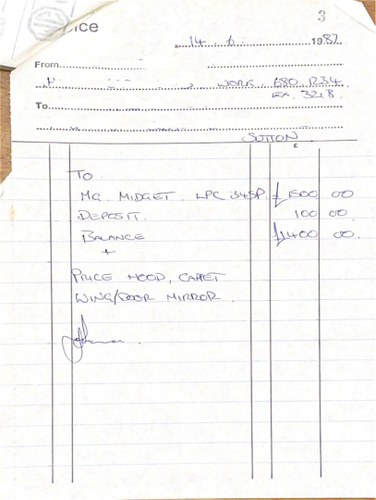 3
14 6 1982
From
WORK. 680 1234
EX. 3218.
To
SUTTON
£
TO
MG. MIDGET. LPC 345P. £1500 00
DEPOSIT. 100 00.
BALANCE £1400 00.
+
PRICE HOOD, CARPET
WING/DOOR MIRROR.